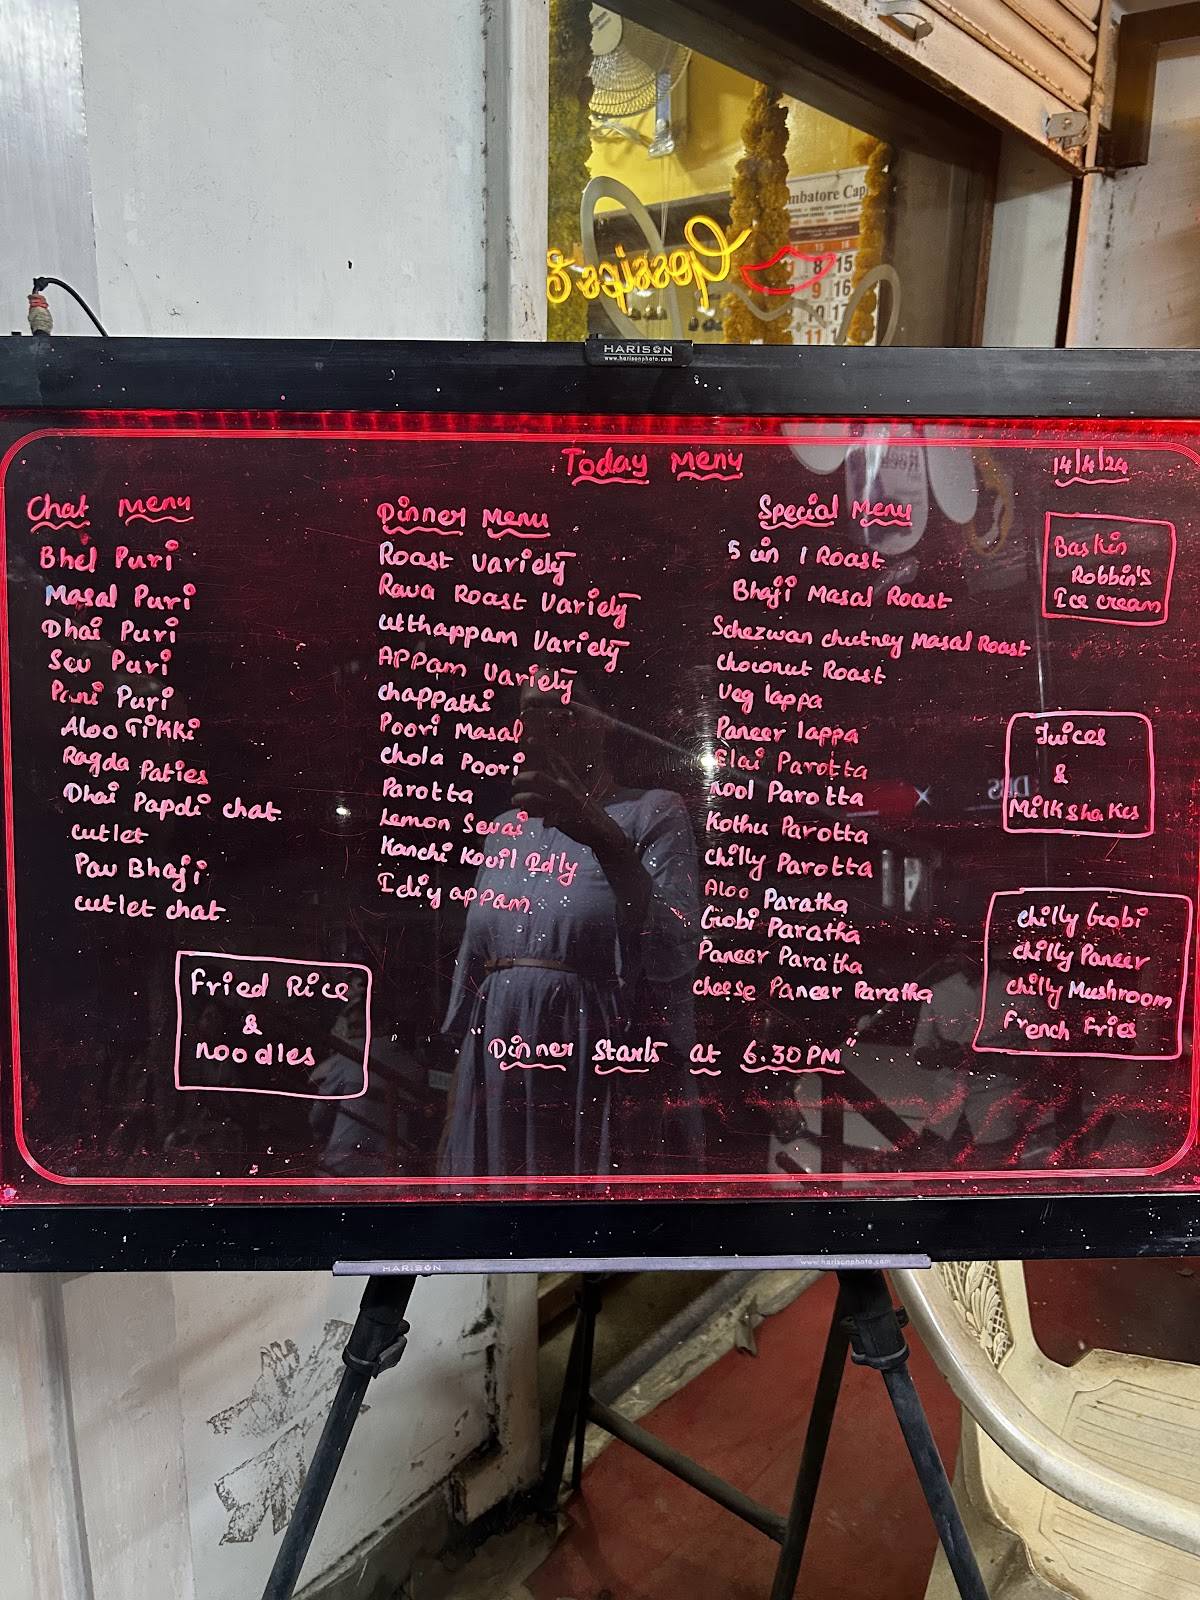 mbatore Cap
15 16
8 15
9 16
10 17
11
Gossips
HARISON
www.harisonphoto.com
Today Menu
14/4/24
Chat Menu
Bhel Puri
Masal Puri
Dhai Puri
Sev Puri
Pani Puri
Aloo Tikki
Ragda Paties
Dhai Papdi chat
cutlet
Pav Bhaji
cutlet chat
Fried Rice
&
noodles
Dinner Menu
Roast Variety
Rava Roast Variety
utthappam Variety
Appam Variety
chappathi
Poori Masal
chola Poori
Parotta
Lemon Sevai
Kanchi Kovil Idly
Idiyappam
Special Menu
5 in 1 Roast
Bhaji Masal Roast
Schezwan chutney Masal Roast
choconut Roast
Veg lappa
Paneer lappa
Elai Parotta
Kool Parotta
Kothu Parotta
chilly Parotta
Aloo Paratha
Gobi Paratha
Paneer Paratha
cheese Paneer Paratha
Baskin
Robbin's
Ice cream
Juices
&
Milkshakes
chilly Gobi
chilly Paneer
chilly Mushroom
French Fries
"Dinner Starts at 6.30 PM"
DBS
HARISON
www.harisonphoto.com